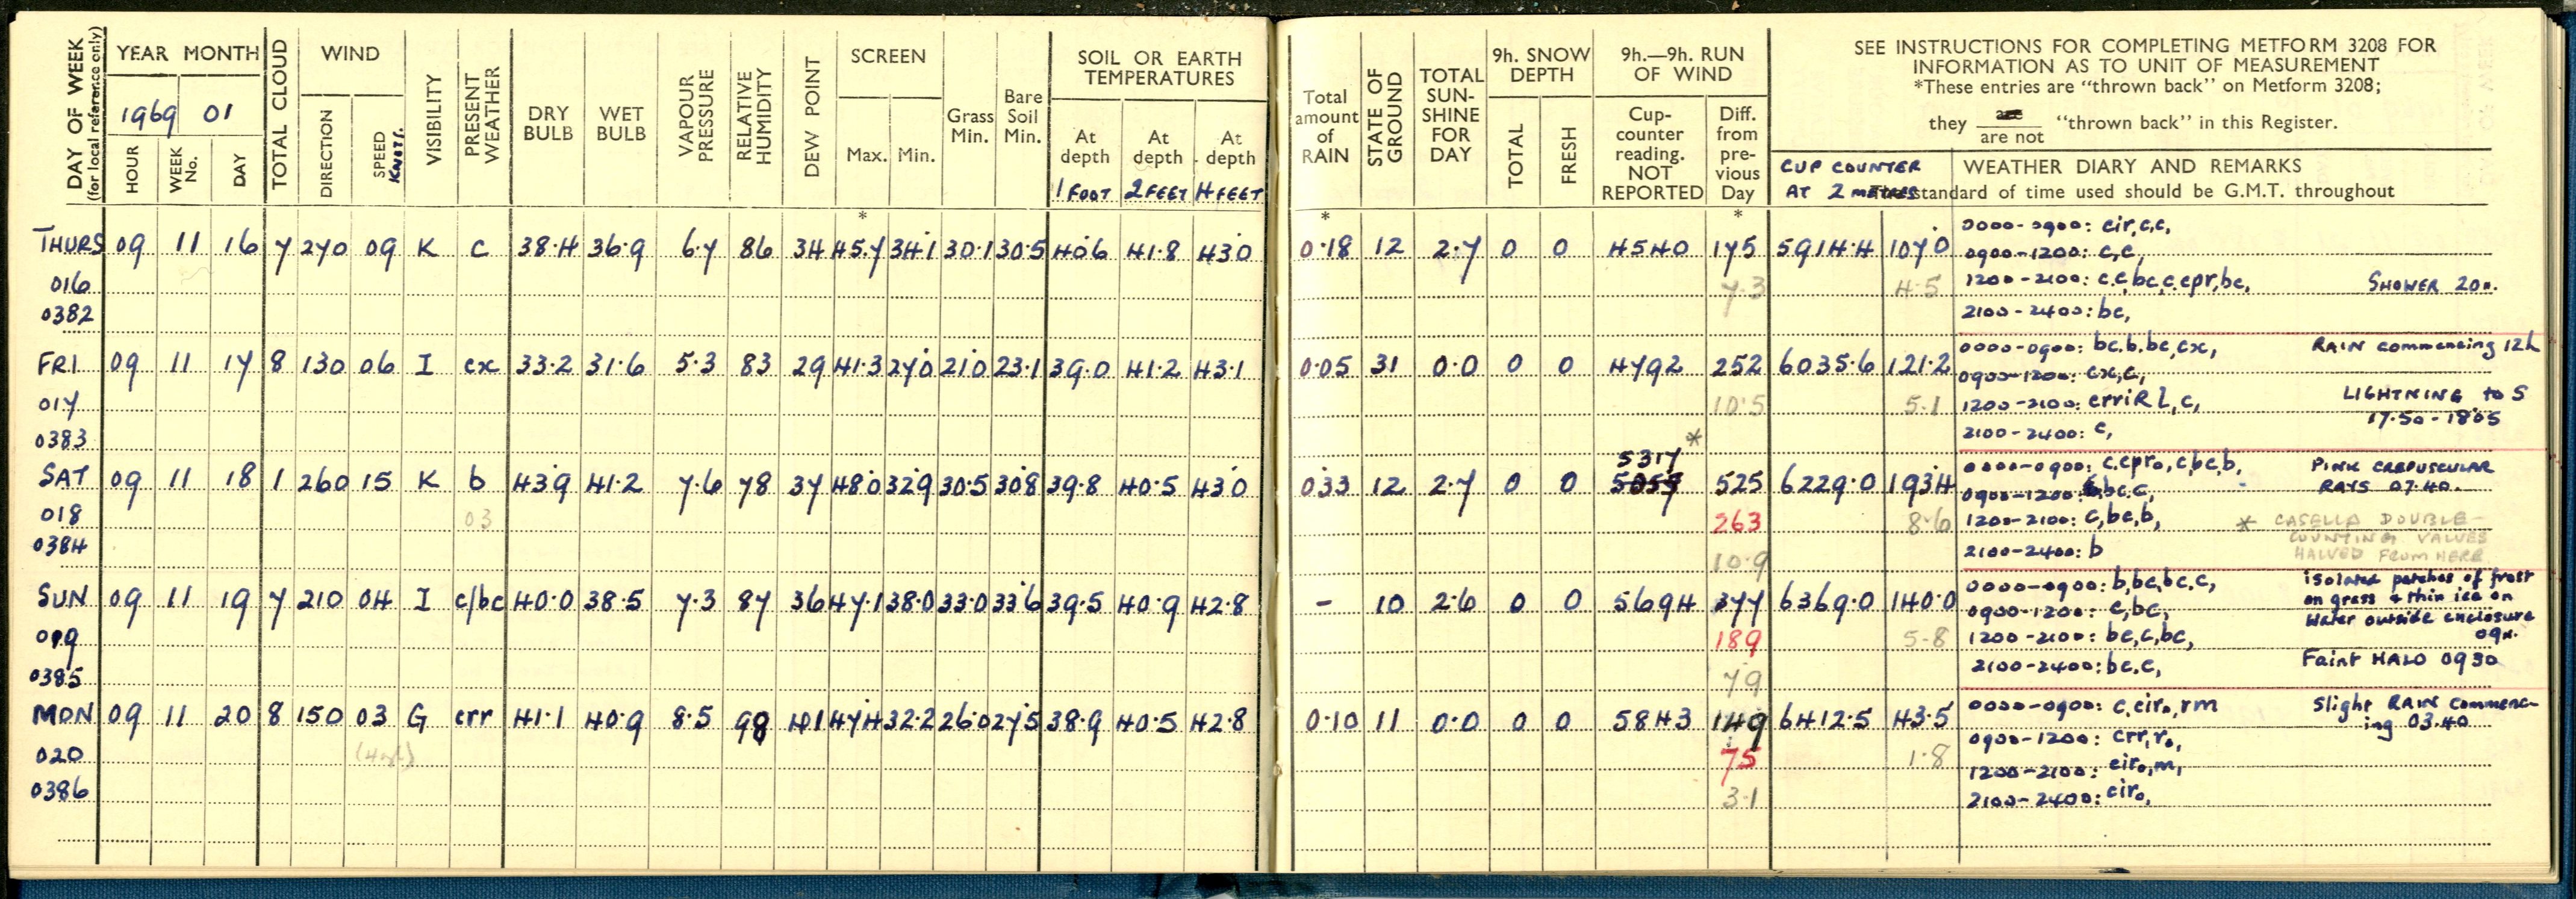 DAY OF WEEK (for local reference only)
YEAR MONTH
1969 01
HOUR
WEEK No.
DAY
TOTAL CLOUD
WIND
DIRECTION
SPEED KNOTS.
VISIBILITY
PRESENT WEATHER
DRY BULB
WET BULB
VAPOUR PRESSURE
RELATIVE HUMIDITY
DEW POINT
SCREEN
Max. Min.
Grass Min.
Bare Soil Min.
SOIL OR EARTH TEMPERATURES
At depth 1 FOOT
At depth 2 FEET
At depth 4 FEET
Total amount of RAIN
STATE OF GROUND
TOTAL SUN-SHINE FOR DAY
9h. SNOW DEPTH
TOTAL
FRESH
9h.—9h. RUN OF WIND
Cup-counter reading. NOT REPORTED
Diff. from pre-vious Day
SEE INSTRUCTIONS FOR COMPLETING METFORM 3208 FOR
INFORMATION AS TO UNIT OF MEASUREMENT
*These entries are "thrown back" on Metform 3208;
they are / are not "thrown back" in this Register.
CUP COUNTER AT 2 METRES
WEATHER DIARY AND REMARKS
standard of time used should be G.M.T. throughout
* * *
THURS 09 11 16 7 270 09 K c 38.4 36.9 6.7 86 34 45.7 34.1 30.1 30.5 40.6 41.8 43.0 0.18 12 2.7 0 0 4540 175 5914.4 107.0
016 7.3 4.5
0382
0000-0900: cir,c,c,
0900-1200: c,c,
1200-2100: c.c,bc,c.cpr,bc, SHOWER 20h.
2100-2400: bc,
FRI 09 11 17 8 130 06 I cx 33.2 31.6 5.3 83 29 41.3 27.0 21.0 23.1 39.0 41.2 43.1 0.05 31 0.0 0 0 4792 252 6035.6 121.2
017 10.5 5.1
0383
0000-0900: bc.b.bc,cx, RAIN commencing 12h
0900-1200: cx,c,
1200-2100: crriRl,c, LIGHTNING to S
17.50-18.05
2100-2400: c,
5317 *
SAT 09 11 18 1 260 15 K b 43.9 41.2 7.6 78 37 48.0 32.9 30.5 30.8 39.8 40.5 43.0 0.33 12 2.7 0 0 525 6229.0 193.4
018 03 263 8.6
0384 10.9
0000-0900: c.cpr₀,c,bc,b, PINK CREPUSCULAR
RAYS 07.40.
0900-1200: bc.c,
1200-2100: c,bc,b, * CASELLA DOUBLE-
COUNTING VALUES
2100-2400: b HALVED FROM HERE
SUN 09 11 19 7 210 04 I c/bc 40.0 38.5 7.3 87 36 47.1 38.0 33.0 33.6 39.5 40.9 42.8 - 10 2.6 0 0 5694 377 6369.0 140.0
019 189 5.8
0385 7.9
0000-0900: b,bc,bc.c, isolated patches of frost
on grass & thin ice on
0900-1200: c,bc, Water outside enclosure
1200-2100: bc,c,bc, 09h.
2100-2400: bc.c, Faint HALO 0930
MON 09 11 20 8 150 03 G crr 41.1 40.9 8.5 98 40.1 47.4 32.2 26.0 27.5 38.9 40.5 42.8 0.10 11 0.0 0 0 5843 149 6412.5 43.5
020 75 1.8
0386 3.1
0000-0900: c.cir₀,rm Slight RAIN commenc-
ing 03.40
0900-1200: crr,r₀,
1200-2100: cir₀,m,
2100-2400: cir₀,